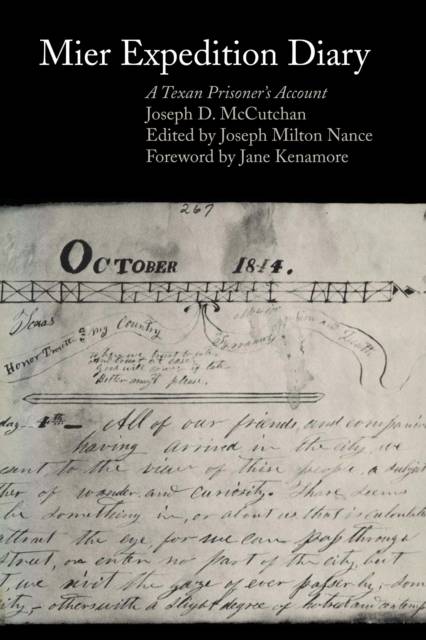 Mier Expedition Diary
A Texan Prisoner's Account
Joseph D. McCutchan
Edited by Joseph Milton Nance
Foreword by Jane Kenamore
267
OCTOBER 1844.
Texas
Honor Truth and my Country
Tyranny and Death
God will
Better must please.
day 4th— All of our friends, and companio
having arrived in the city, we
cant to the view of these people, a subject
ther of wonder and curiosity. There seems
be something in, or about us that is calculate
attract the eye for we can pass through
street, or enter no part of the city, but
t we meet the gaze of ever passer by, som
ity, others with a slight degree of hatred and contemp